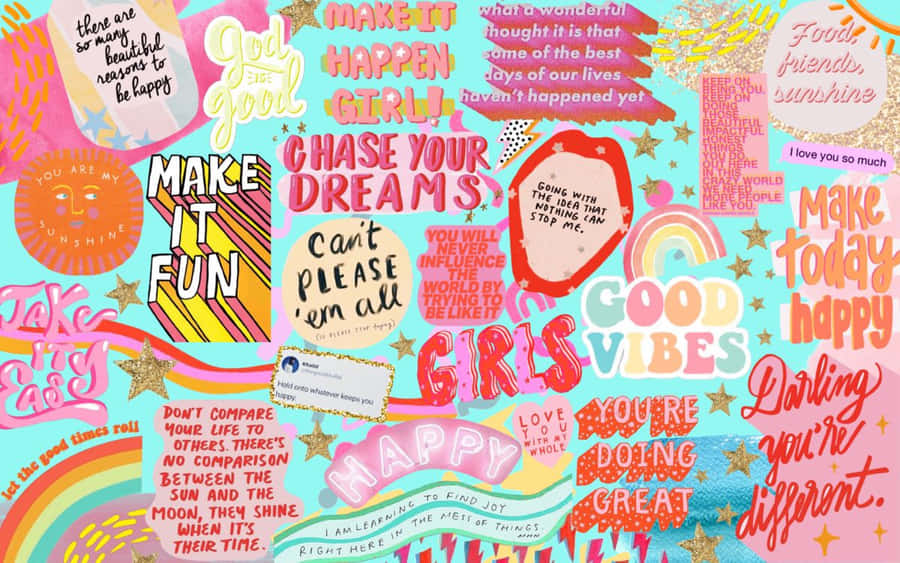 there are
so many
beautiful
reasons to
be happy
God
IS
good
MAKE IT
HAPPEN
GIRL!
what a wonderful
thought it is that
some of the best
days of our lives
haven't happened yet
Food,
friends,
sunshine
KEEP ON
BEING YOU.
KEEP ON
DOING
THOSE
BEAUTIFUL
IMPACTFUL
HONEST
THINGS
YOU DO.
OUT HERE
IN THIS
CRAZY WORLD
WE NEED
MORE PEOPLE
LIKE YOU.
I love you so much
YOU ARE MY
SUNSHINE
MAKE
IT
FUN
CHASE YOUR
DREAMS
GOING WITH
THE IDEA THAT
NOTHING CAN
STOP ME.
make
today
happy
can't
PLEASE
'em all
(SO PLEASE STOP trying)
YOU WILL
NEVER
INFLUENCE
THE
WORLD BY
TRYING TO
BE LIKE IT
GOOD
VIBES
TAKE
IT
EASY
GIRLS
Khalid
Hold onto whatever keeps you
happy.
let the good times roll
DON'T COMPARE
YOUR LIFE TO
OTHERS. THERE'S
NO COMPARISON
BETWEEN THE
SUN AND THE
MOON, THEY SHINE
WHEN IT'S
THEIR TIME.
HAPPY
LOVE
YOU
WITH MY
WHOLE
I AM LEARNING TO FIND JOY
RIGHT HERE IN THE MESS OF THINGS.
YOU'RE
DOING
GREAT
Darling
you're
different.